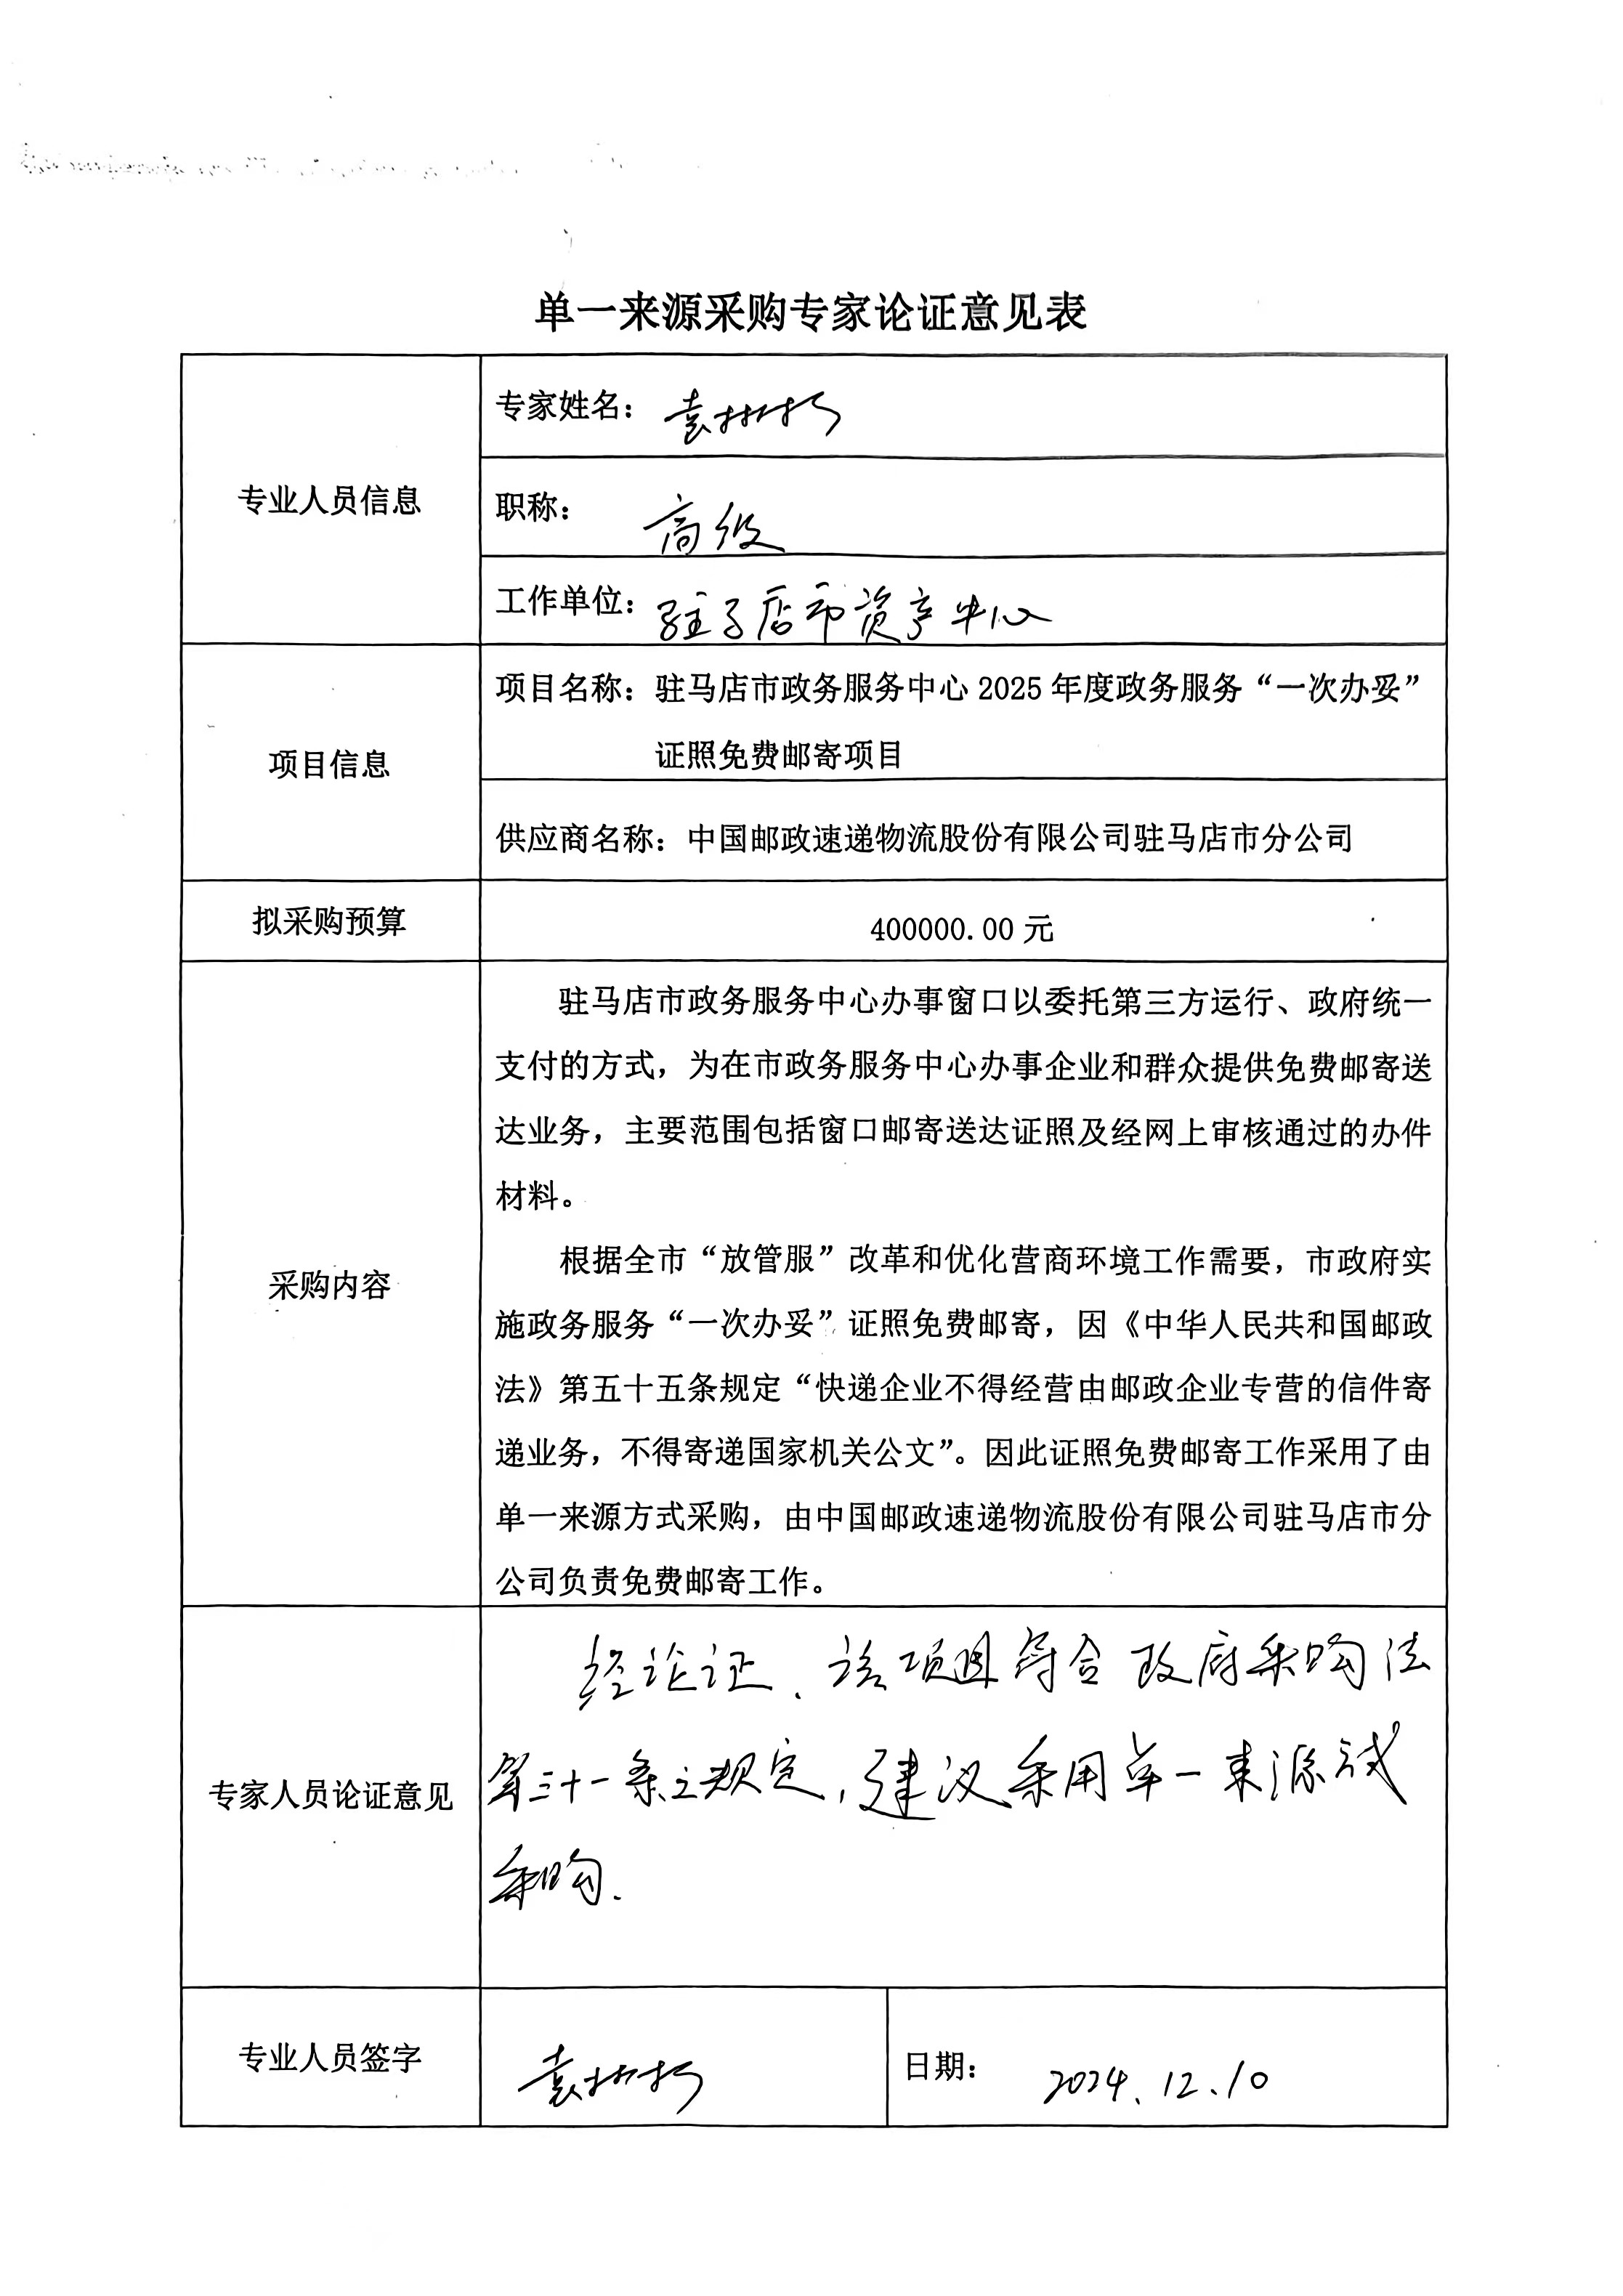 单一来源采购专家论证意见表
专业人员信息
专家姓名：袁
职称：高级
工作单位：驻马店市资产中心
项目信息
项目名称：驻马店市政务服务中心2025年度政务服务“一次办妥”
证照免费邮寄项目
供应商名称：中国邮政速递物流股份有限公司驻马店市分公司
拟采购预算
400000.00元
采购内容
驻马店市政务服务中心办事窗口以委托第三方运行、政府统一
支付的方式，为在市政务服务中心办事企业和群众提供免费邮寄送
达业务，主要范围包括窗口邮寄送达证照及经网上审核通过的办件
材料。
根据全市“放管服”改革和优化营商环境工作需要，市政府实
施政务服务“一次办妥”证照免费邮寄，因《中华人民共和国邮政
法》第五十五条规定“快递企业不得经营由邮政企业专营的信件寄
递业务，不得寄递国家机关公文”。因此证照免费邮寄工作采用了由
单一来源方式采购，由中国邮政速递物流股份有限公司驻马店市分
公司负责免费邮寄工作。
专家人员论证意见
经论证、该项目符合政府采购法
第三十一条之规定，建议采用单一来源方式
采购.
专业人员签字
袁
日期：2024.12.10